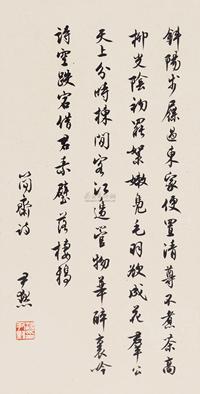 斜陽步屧過東家便置清尊不煮茶高
柳光陰初罷絮嫩鳧毛羽欲成花羣公
天上分時棟閒客江邊管物華醉裏吟
詩空跌宕借君素壁落棲鴉
簡齋詩
尹默